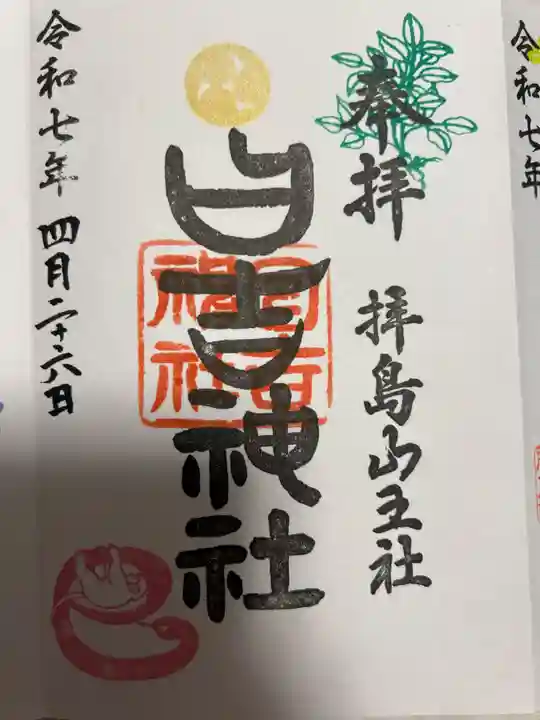 奉拝
拝島山王社
日吉神社
日吉神社
令和七年 四月二十六日
令和七年